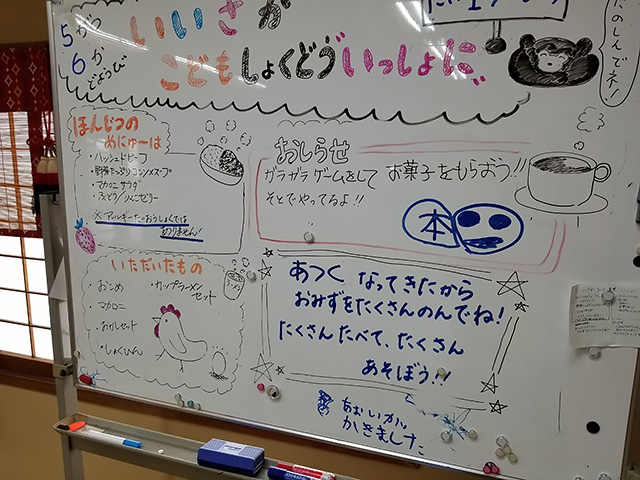 5がつ
6か
どようび
いいさか
こどもしょくどういっしょに
たのしんでネ!
ほんじつの
めにゅーは
・ハッシュドビーフ
・野菜たっぷりコンソメスープ
・マカロニサラダ
・ぶどうゼリー
※アレルギーたいおうしょくでは
ありません!
おしらせ
ガラガラゲームをして お菓子をもらおう!!
そとでやってるよ!!
本
いただいたもの
・おこめ
・カップラーメン
セット
マカロニ
・おかしセット
・しょくひん
あつく なってきたから
おみずをたくさんのんでね!
たくさんたべて、たくさん
あそぼう!!
かきました